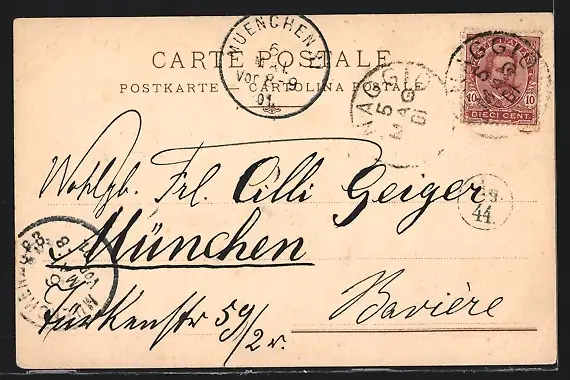 CARTE POSTALE
POSTKARTE — CARTOLINA POSTALE
MUENCHEN
6
MAI
Vor 8-9
01.
MAGGIO
5
MAG
01
10 10
DIECI CENT.
Wohlgb. Frl. Cilli Geiger
München
44.
Türkenstr 59/2 r.
Bavière